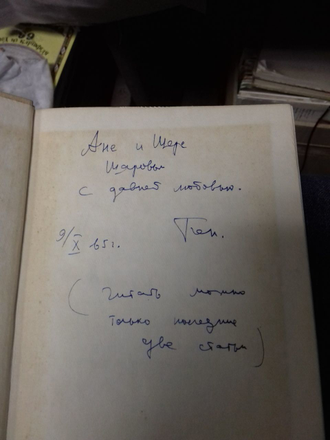 Ане и Шере
Шаровым
с давней любовью.
9/X 65 г.
(читать можно
только последние
две статьи)